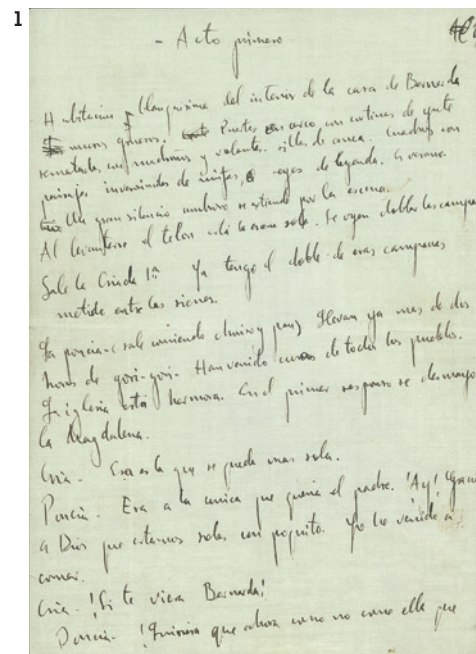 1
- Acto primero
Habitación blanquísima del interior de la casa de Bernarda
muros gruesos. Puertas en arco con cortinas de yute
rematadas con madroños y volantes. sillas de anea. Cuadros con
paisajes inverosímiles de ninfas, o reyes de leyenda. Es verano.
Un gran silencio umbroso se extiende por la escena.
Al levantarse el telon está la escena sola. Se oyen doblar las campanas
Sale la Criada 1ª Ya tengo el doble de esas campanas
metido entre las sienes.
La poncia - (sale comiendo chorizo y pan) Llevan ya mas de dos
horas de gori-gori. Han venido curas de todos los pueblos.
La iglesia está hermosa. En el primer responso se desmayo
la Magdalena.
Cria. Esa es la que se queda mas sola.
Poncia. Era a la unica que queria el padre. ¡Ay! Gracias
a Dios que estamos solas un poquito. Yo he venido a
comer.
Cria. ¡Si te viera Bernarda!
Poncia. ¡Quisiera que ahora como no come ella que